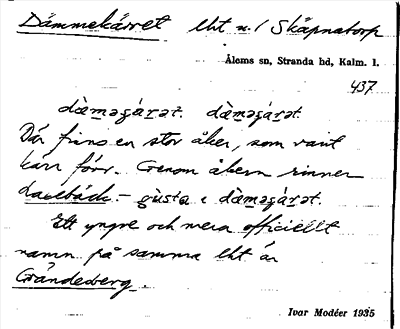 Dämmekärret lht u. / Skäpnatorp
Ålems sn, Stranda hd, Kalm. l.
437
dàmǝgárǝt. dàmǝgárǝt.
Där finns en stor åker, som varit
kärr förr. Genom åkern rinner
bäck. – gùsta i dàmǝgárǝt.
Ett yngre och mera officiellt
namn på samma lht är
Grändeberg.
Ivar Modéer 1935